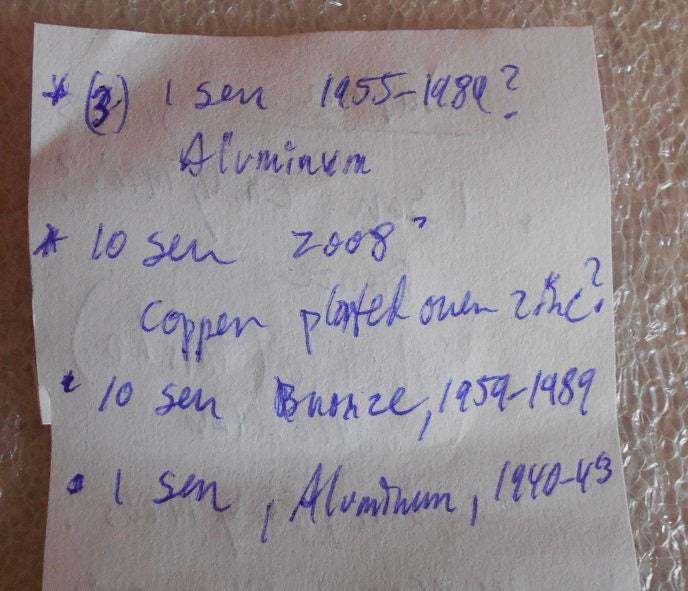 * (3) 1 sen 1955-1989?
Aluminum
* 10 sen 2008?
Copper plated over zinc?
• 10 sen Bronze, 1959-1989
• 1 sen, Aluminum, 1940-43